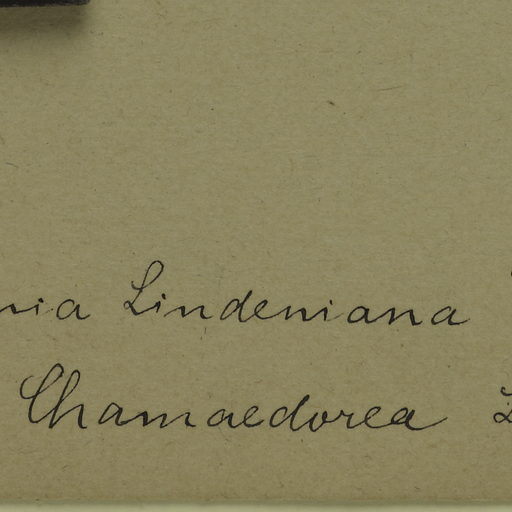 nia Lindeniana
Chamaedorea